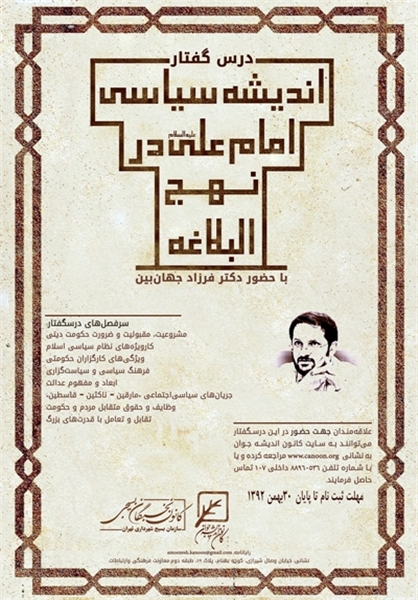 درس گفتار
اندیشه سیاسی
امام علی علیه‌السلام در
نهج
البلاغه
با حضور دکتر فرزاد جهان‌بین
سرفصل‌های درسگفتار:
مشروعیت، مقبولیت و ضرورت حکومت دینی
کارویژه‌های نظام سیاسی اسلام
ویژگی‌های کارگزاران حکومتی
فرهنگ سیاسی و سیاست‌گزاری
ابعاد و مفهوم عدالت
جریان‌های سیاسی‌اجتماعی ،مارقین - ناکثین - قاسطین،
وظایف و حقوق متقابل مردم و حکومت
تقابل و تعامل با قدرت‌های بزرگ
علاقه‌مندان جهت حضور در این درسگفتار
می‌توانند به سایت کانون اندیشه جوان
به نشانی www.canoon.org مراجعه کرده و یا
با شماره تلفن ۸۸۹۶۰۵۳۶ داخلی ۱۰۷ تماس
حاصل فرمایند.
مهلت ثبت نام تا پایان ۳۰ بهمن ۱۳۹۲
سازمان بسیج شهرداری تهران
کانون اندیشه جوان
نشانی: خیابان وصال شیرازی، کوچه بهنام، پلاک ۱۹، طبقه دوم معاونت فرهنگی وارتباطات